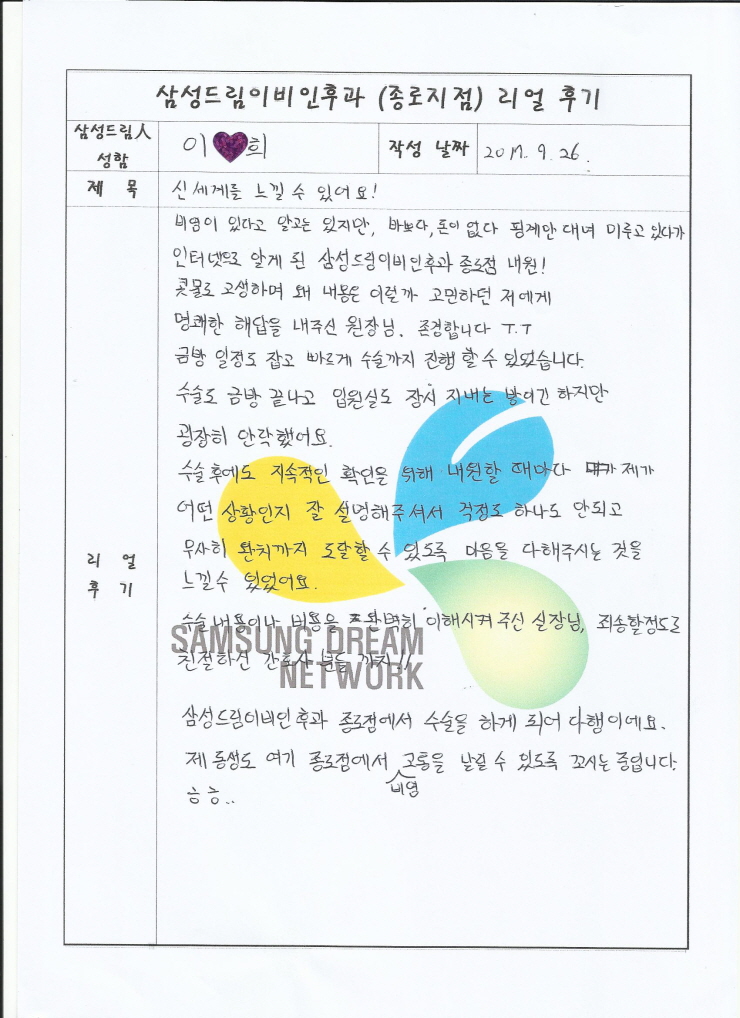 삼성드림이비인후과 (종로지점) 리얼 후기
삼성드림人
성함
이♥희
작성 날짜
2017. 9. 26.
제 목
신세계를 느낄 수 있어요!
리 얼
후 기
비염이 있다고 알고는 있지만, 바쁘다, 돈이 없다 핑계만 대며 미루고 있다가
인터넷으로 알게 된 삼성드림이비인후과 종로점 내원!
콧물로 고생하며 왜 내몸은 이럴까 고민하던 저에게
명쾌한 해답을 내주신 원장님. 존경합니다 T.T
금방 일정도 잡고 빠르게 수술까지 진행 할 수 있었습니다.
수술도 금방 끝나고 입원실도 잠시 지내는 방이긴 하지만
굉장히 안락했어요.
수술 후에도 지속적인 확인을 위해 내원할 때마다 제가
어떤 상황인지 잘 설명해주셔서 걱정도 하나도 안되고
무사히 완치까지 도달할 수 있도록 마음을 다해주시는 것을
느낄수 있었어요.
수술내용이나 비용을 완벽히 이해시켜 주신 실장님, 죄송할정도로
친절하신 간호사 분들 까지!!
SAMSUNG DREAM
NETWORK
삼성드림이비인후과 종로점에서 수술을 하게 되어 다행이에요.
제 동생도 여기 종로점에서 비염 고통을 날릴 수 있도록 꼬시는 중입니다.
흐흐..